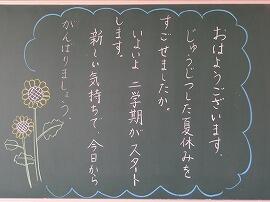 おはようございます。
じゅうじつした夏休みを
すごせましたか。
いよいよ二学期がスタート
します。
新しい気持ちで、今日から
がんばりましょう。